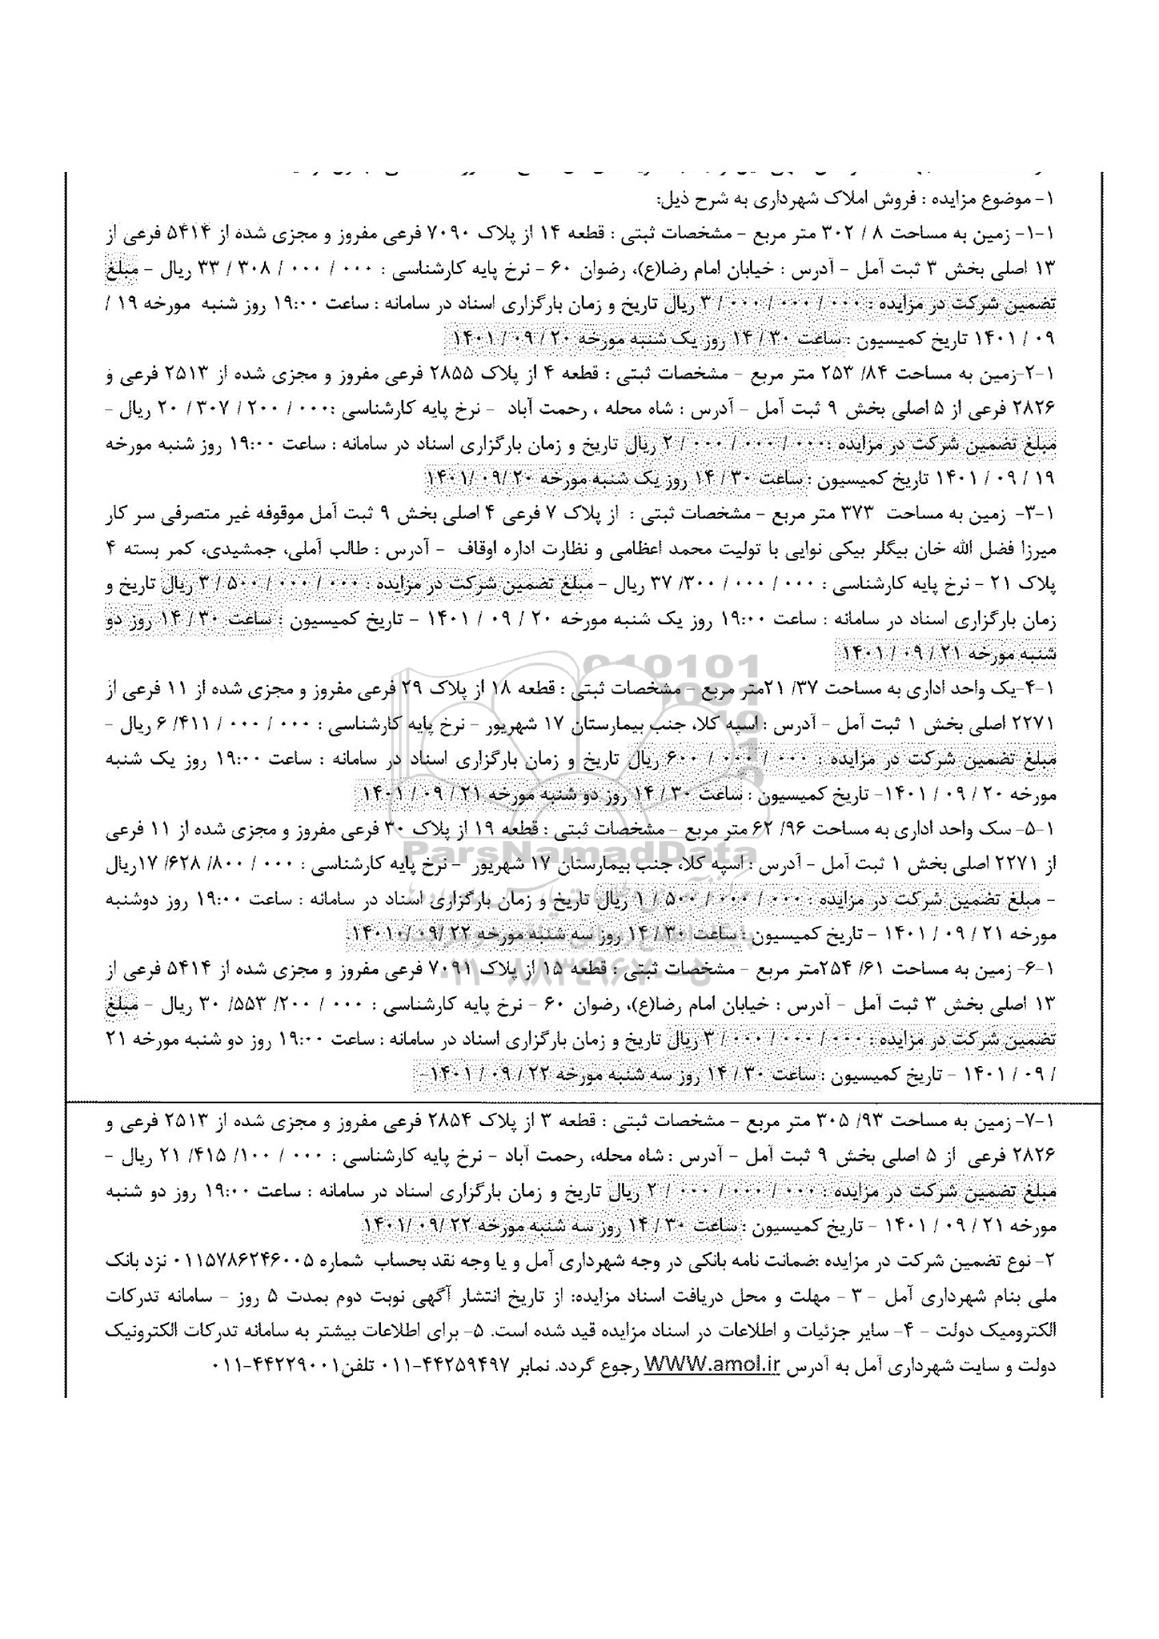 ۱- موضوع مزایده : فروش املاک شهرداری به شرح ذیل:
۱-۱- زمین به مساحت ۸ / ۳۰۲ متر مربع - مشخصات ثبتی : قطعه ۱۴ از پلاک ۷۰۹۰ فرعی مفروز و مجزی شده از ۵۴۱۴ فرعی از
۱۳ اصلی بخش ۳ ثبت آمل - آدرس : خیابان امام رضا(ع)، رضوان ۶۰ - نرخ پایه کارشناسی : ۰۰۰ / ۰۰۰ / ۳۰۸ / ۳۳ ریال - مبلغ
تضمین شرکت در مزایده : ۰۰۰ / ۰۰۰ / ۰۰۰ / ۳ ریال تاریخ و زمان بارگزاری اسناد در سامانه : ساعت ۱۹:۰۰ روز شنبه مورخه ۱۹ /
۰۹ / ۱۴۰۱ تاریخ کمیسیون : ساعت ۳۰ / ۱۴ روز یک شنبه مورخه ۲۰ / ۰۹ / ۱۴۰۱
۲-۱-زمین به مساحت ۸۴/ ۲۵۳ متر مربع - مشخصات ثبتی : قطعه ۴ از پلاک ۲۸۵۵ فرعی مفروز و مجزی شده از ۲۵۱۳ فرعی و
۲۸۲۶ فرعی از ۵ اصلی بخش ۹ ثبت آمل - آدرس : شاه محله ، رحمت آباد - نرخ پایه کارشناسی :۰۰۰ / ۲۰۰ / ۳۰۷ / ۲۰ ریال -
مبلغ تضمین شرکت در مزایده :۰۰۰ / ۰۰۰ / ۰۰۰ / ۲ ریال تاریخ و زمان بارگزاری اسناد در سامانه : ساعت ۱۹:۰۰ روز شنبه مورخه
۱۹ / ۰۹ / ۱۴۰۱ تاریخ کمیسیون : ساعت ۳۰ / ۱۴ روز یک شنبه مورخه ۲۰ /۰۹ /۱۴۰۱
۳-۱- زمین به مساحت ۳۷۳ متر مربع - مشخصات ثبتی : از پلاک ۷ فرعی ۴ اصلی بخش ۹ ثبت آمل موقوفه غیر متصرفی سر کار
میرزا فضل الله خان بیگلر بیکی نوایی با تولیت محمد اعظامی و نظارت اداره اوقاف - آدرس : طالب آملی، جمشیدی، کمر بسته ۴
پلاک ۲۱ - نرخ پایه کارشناسی : ۰۰۰ / ۰۰۰ / ۳۰۰/ ۳۷ ریال - مبلغ تضمین شرکت در مزایده : ۰۰۰ / ۰۰۰ / ۵۰۰ / ۳ ریال تاریخ و
زمان بارگزاری اسناد در سامانه : ساعت ۱۹:۰۰ روز یک شنبه مورخه ۲۰ / ۰۹ / ۱۴۰۱ - تاریخ کمیسیون : ساعت ۳۰ / ۱۴ روز دو
شنبه مورخه ۲۱ / ۰۹ / ۱۴۰۱
۴-۱-یک واحد اداری به مساحت ۳۷/ ۲۱متر مربع - مشخصات ثبتی : قطعه ۱۸ از پلاک ۲۹ فرعی مفروز و مجزی شده از ۱۱ فرعی از
۲۲۷۱ اصلی بخش ۱ ثبت آمل - آدرس : اسپه کلا، جنب بیمارستان ۱۷ شهریور - نرخ پایه کارشناسی : ۰۰۰ / ۰۰۰ / ۴۱۱/ ۶ ریال -
مبلغ تضمین شرکت در مزایده : ۰۰۰ / ۰۰۰ / ۶۰۰ ریال تاریخ و زمان بارگزاری اسناد در سامانه : ساعت ۱۹:۰۰ روز یک شنبه
مورخه ۲۰ / ۰۹ / ۱۴۰۱- تاریخ کمیسیون : ساعت ۳۰ / ۱۴ روز دو شنبه مورخه ۲۱ / ۰۹ / ۱۴۰۱
۵-۱- سک واحد اداری به مساحت ۹۶/ ۶۲ متر مربع - مشخصات ثبتی : قطعه ۱۹ از پلاک ۳۰ فرعی مفروز و مجزی شده از ۱۱ فرعی
ParsNamadData
از ۲۲۷۱ اصلی بخش ۱ ثبت آمل - آدرس : اسپه کلا، جنب بیمارستان ۱۷ شهریور - نرخ پایه کارشناسی : ۰۰۰ / ۸۰۰/ ۶۲۸/ ۱۷ریال
- مبلغ تضمین شرکت در مزایده : ۰۰۰ / ۰۰۰ / ۵۰۰ / ۱ ریال تاریخ و زمان بارگزاری اسناد در سامانه : ساعت ۱۹:۰۰ روز دوشنبه
مورخه ۲۱ / ۰۹ / ۱۴۰۱ - تاریخ کمیسیون : ساعت ۳۰ / ۱۴ روز سه شنبه مورخه ۲۲ /۰۹ /۱۴۰۱۰
۶-۱- زمین به مساحت ۶۱/ ۲۵۴متر مربع - مشخصات ثبتی : قطعه ۱۵ از پلاک ۷۰۹۱ فرعی مفروز و مجزی شده از ۵۴۱۴ فرعی از
۱۳ اصلی بخش ۳ ثبت آمل - آدرس : خیابان امام رضا(ع)، رضوان ۶۰ - نرخ پایه کارشناسی : ۰۰۰ / ۲۰۰/ ۵۵۳/ ۳۰ ریال - مبلغ
تضمین شرکت در مزایده : ۰۰۰ / ۰۰۰ / ۰۰۰ / ۳ ریال تاریخ و زمان بارگزاری اسناد در سامانه : ساعت ۱۹:۰۰ روز دو شنبه مورخه ۲۱
/ ۰۹ / ۱۴۰۱ - تاریخ کمیسیون : ساعت ۳۰ / ۱۴ روز سه شنبه مورخه ۲۲ / ۰۹ / ۱۴۰۱-
۷-۱- زمین به مساحت ۹۳/ ۳۰۵ متر مربع - مشخصات ثبتی : قطعه ۳ از پلاک ۲۸۵۴ فرعی مفروز و مجزی شده از ۲۵۱۳ فرعی و
۲۸۲۶ فرعی از ۵ اصلی بخش ۹ ثبت آمل - آدرس : شاه محله، رحمت آباد - نرخ پایه کارشناسی : ۰۰۰ / ۱۰۰/ ۴۱۵/ ۲۱ ریال -
مبلغ تضمین شرکت در مزایده : ۰۰۰ / ۰۰۰ / ۰۰۰ / ۲ ریال تاریخ و زمان بارگزاری اسناد در سامانه : ساعت ۱۹:۰۰ روز دو شنبه
مورخه ۲۱ / ۰۹ / ۱۴۰۱ - تاریخ کمیسیون : ساعت ۳۰ / ۱۴ روز سه شنبه مورخه ۲۲ /۰۹ /۱۴۰۱
۲- نوع تضمین شرکت در مزایده :ضمانت نامه بانکی در وجه شهرداری آمل و یا وجه نقد بحساب شماره ۰۱۱۵۷۸۶۲۴۶۰۰۵ نزد بانک
ملی بنام شهرداری آمل - ۳ - مهلت و محل دریافت اسناد مزایده: از تاریخ انتشار آگهی نوبت دوم بمدت ۵ روز - سامانه تدرکات
الکترومیک دولت - ۴- سایر جزئیات و اطلاعات در اسناد مزایده قید شده است. ۵- برای اطلاعات بیشتر به سامانه تدرکات الکترونیک
دولت و سایت شهرداری آمل به آدرس WWW.amol.ir رجوع گردد. نمابر ۴۴۲۵۹۴۹۷-۰۱۱ تلفن۴۴۲۲۹۰۰۱-۰۱۱